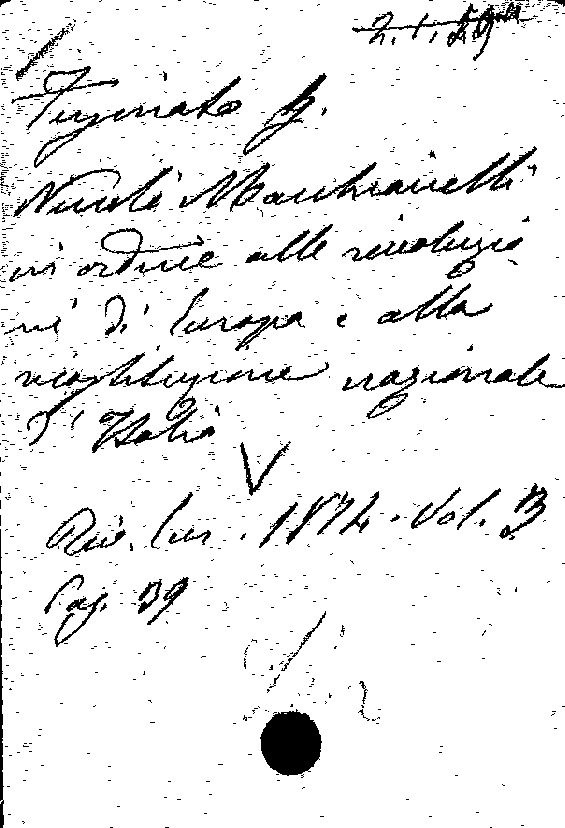 Nicolò Macchiavelli
in ordine alle rivoluzio
ni di Europa e alla
ricostituzione nazionale
d'Italia
V
Riv. Eur. 1874. Vol. 3
Pag. 39